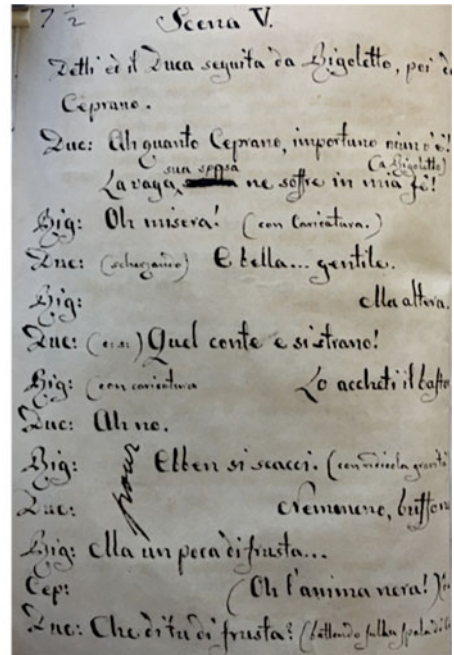 7 1/2
Scena V.
Detti ed il Duca seguita da Rigoletto, poi
Ceprano.
Duc: Ah quanto Ceprano, importuno niun v'è!
sua sposa (a Rigoletto)
La vaga, ne soffre in mia fè!
Rig: Oh misera! (con caricatura.)
Duc: (scherzando) E bella... gentile.
Rig: Ma altera.
Duc: Quel conte e si strano!
Rig: (con caricatura Lo accheti il basto
Duc: Ah no.
Rig: Ebben si scacci. (con ridicola gravità
Duc: Nemeneno, buffon
Rig: Ma un poca di frusta...
Cep: (Oh l'anima nera!)
Duc: Che di tu di frusta? (battendo sulla spala di